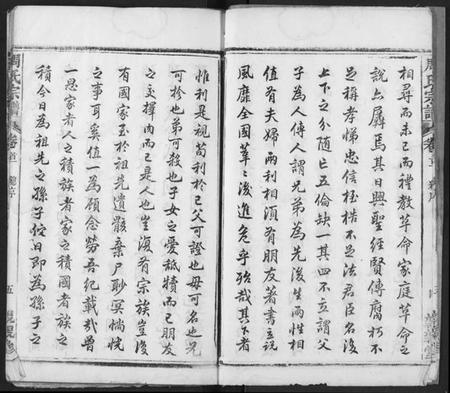 周氏宗譜
卷首
相尋而未已而禮教革命家庭革命之
說亦囂焉其曰興聖經賢傳腐朽不
足稱孝悌忠信桎梏不足法君臣名沒
上下之分隨亡五倫缺一其四不立謂父
子為人傳人謂兄弟為先後生兩性相
值有夫婦兩利相須有朋友著書立說
風靡全國莘莘後進免乎殆哉其下者
惟利是視苟利於己父可證也母可名也兄
可紾也弟可殺也子女之愛舐犢而已朋友
之交擇肉而已是人也豈復有宗族豈復
有國家至於祖先遺骸棄尸眇冥惝恍
之事耳奚值一為顧念勞吾紀載哉曾
一思家者人之積族者家之積國者族之
積今日為祖先之孫子他日即為孫子之
周氏宗譜
卷首
五